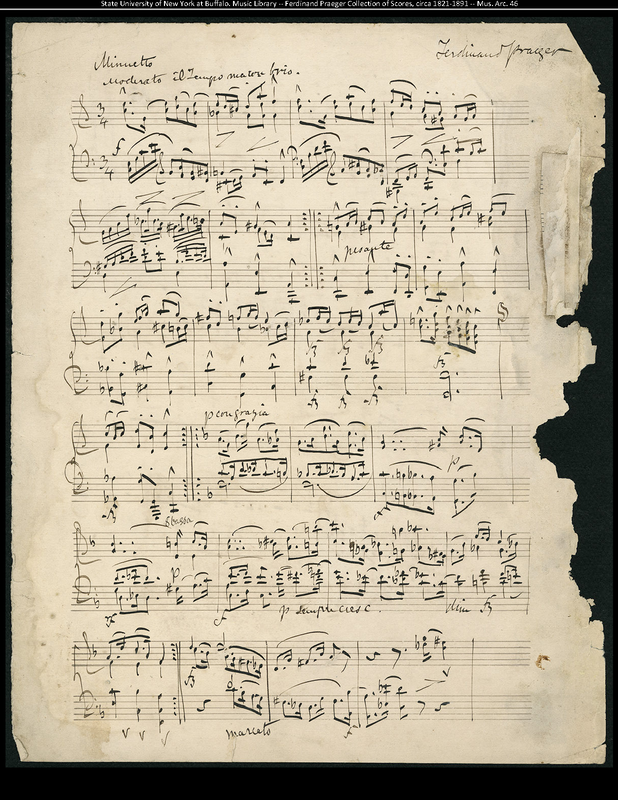 State University of New York at Buffalo. Music Library -- Ferdinand Praeger Collection of Scores, circa 1821-1891 -- Mus. Arc. 46
Ferdinand Praeger
Minuetto
Moderato il Tempo ma con brio.
3/4
f
3/4
pesante
p con grazia
p
8 bassa
p
p sempre cresc.
dim
marcato